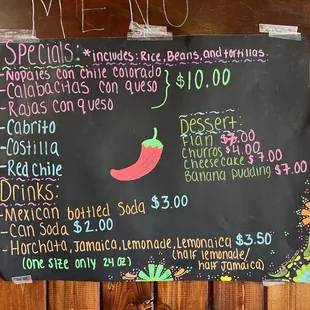 MENU
Specials: *includes: Rice, Beans, and tortillas.
-Nopales con chile colorado
-Calabacitas con queso
-Rajas con queso
$10.00
-Cabrito
-Costilla
-Red Chile
Dessert:
Flan $5.00
Churros $4.00
Cheesecake $7.00
Banana pudding $7.00
Drinks:
-Mexican bottled Soda $3.00
-Can Soda $2.00
-Horchata, Jamaica, Lemonade, Lemonaica $3.50
(one size only 24 oz)
(half lemonade/
half Jamaica)